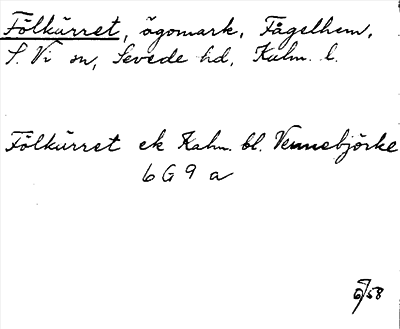 Fölkärret, ägomark, Fågelhem,
S. Vi sn, Sevede hd, Kalm. l.
Fölkärret ek Kalm. bl. Vennebjörke
6 G 9 a